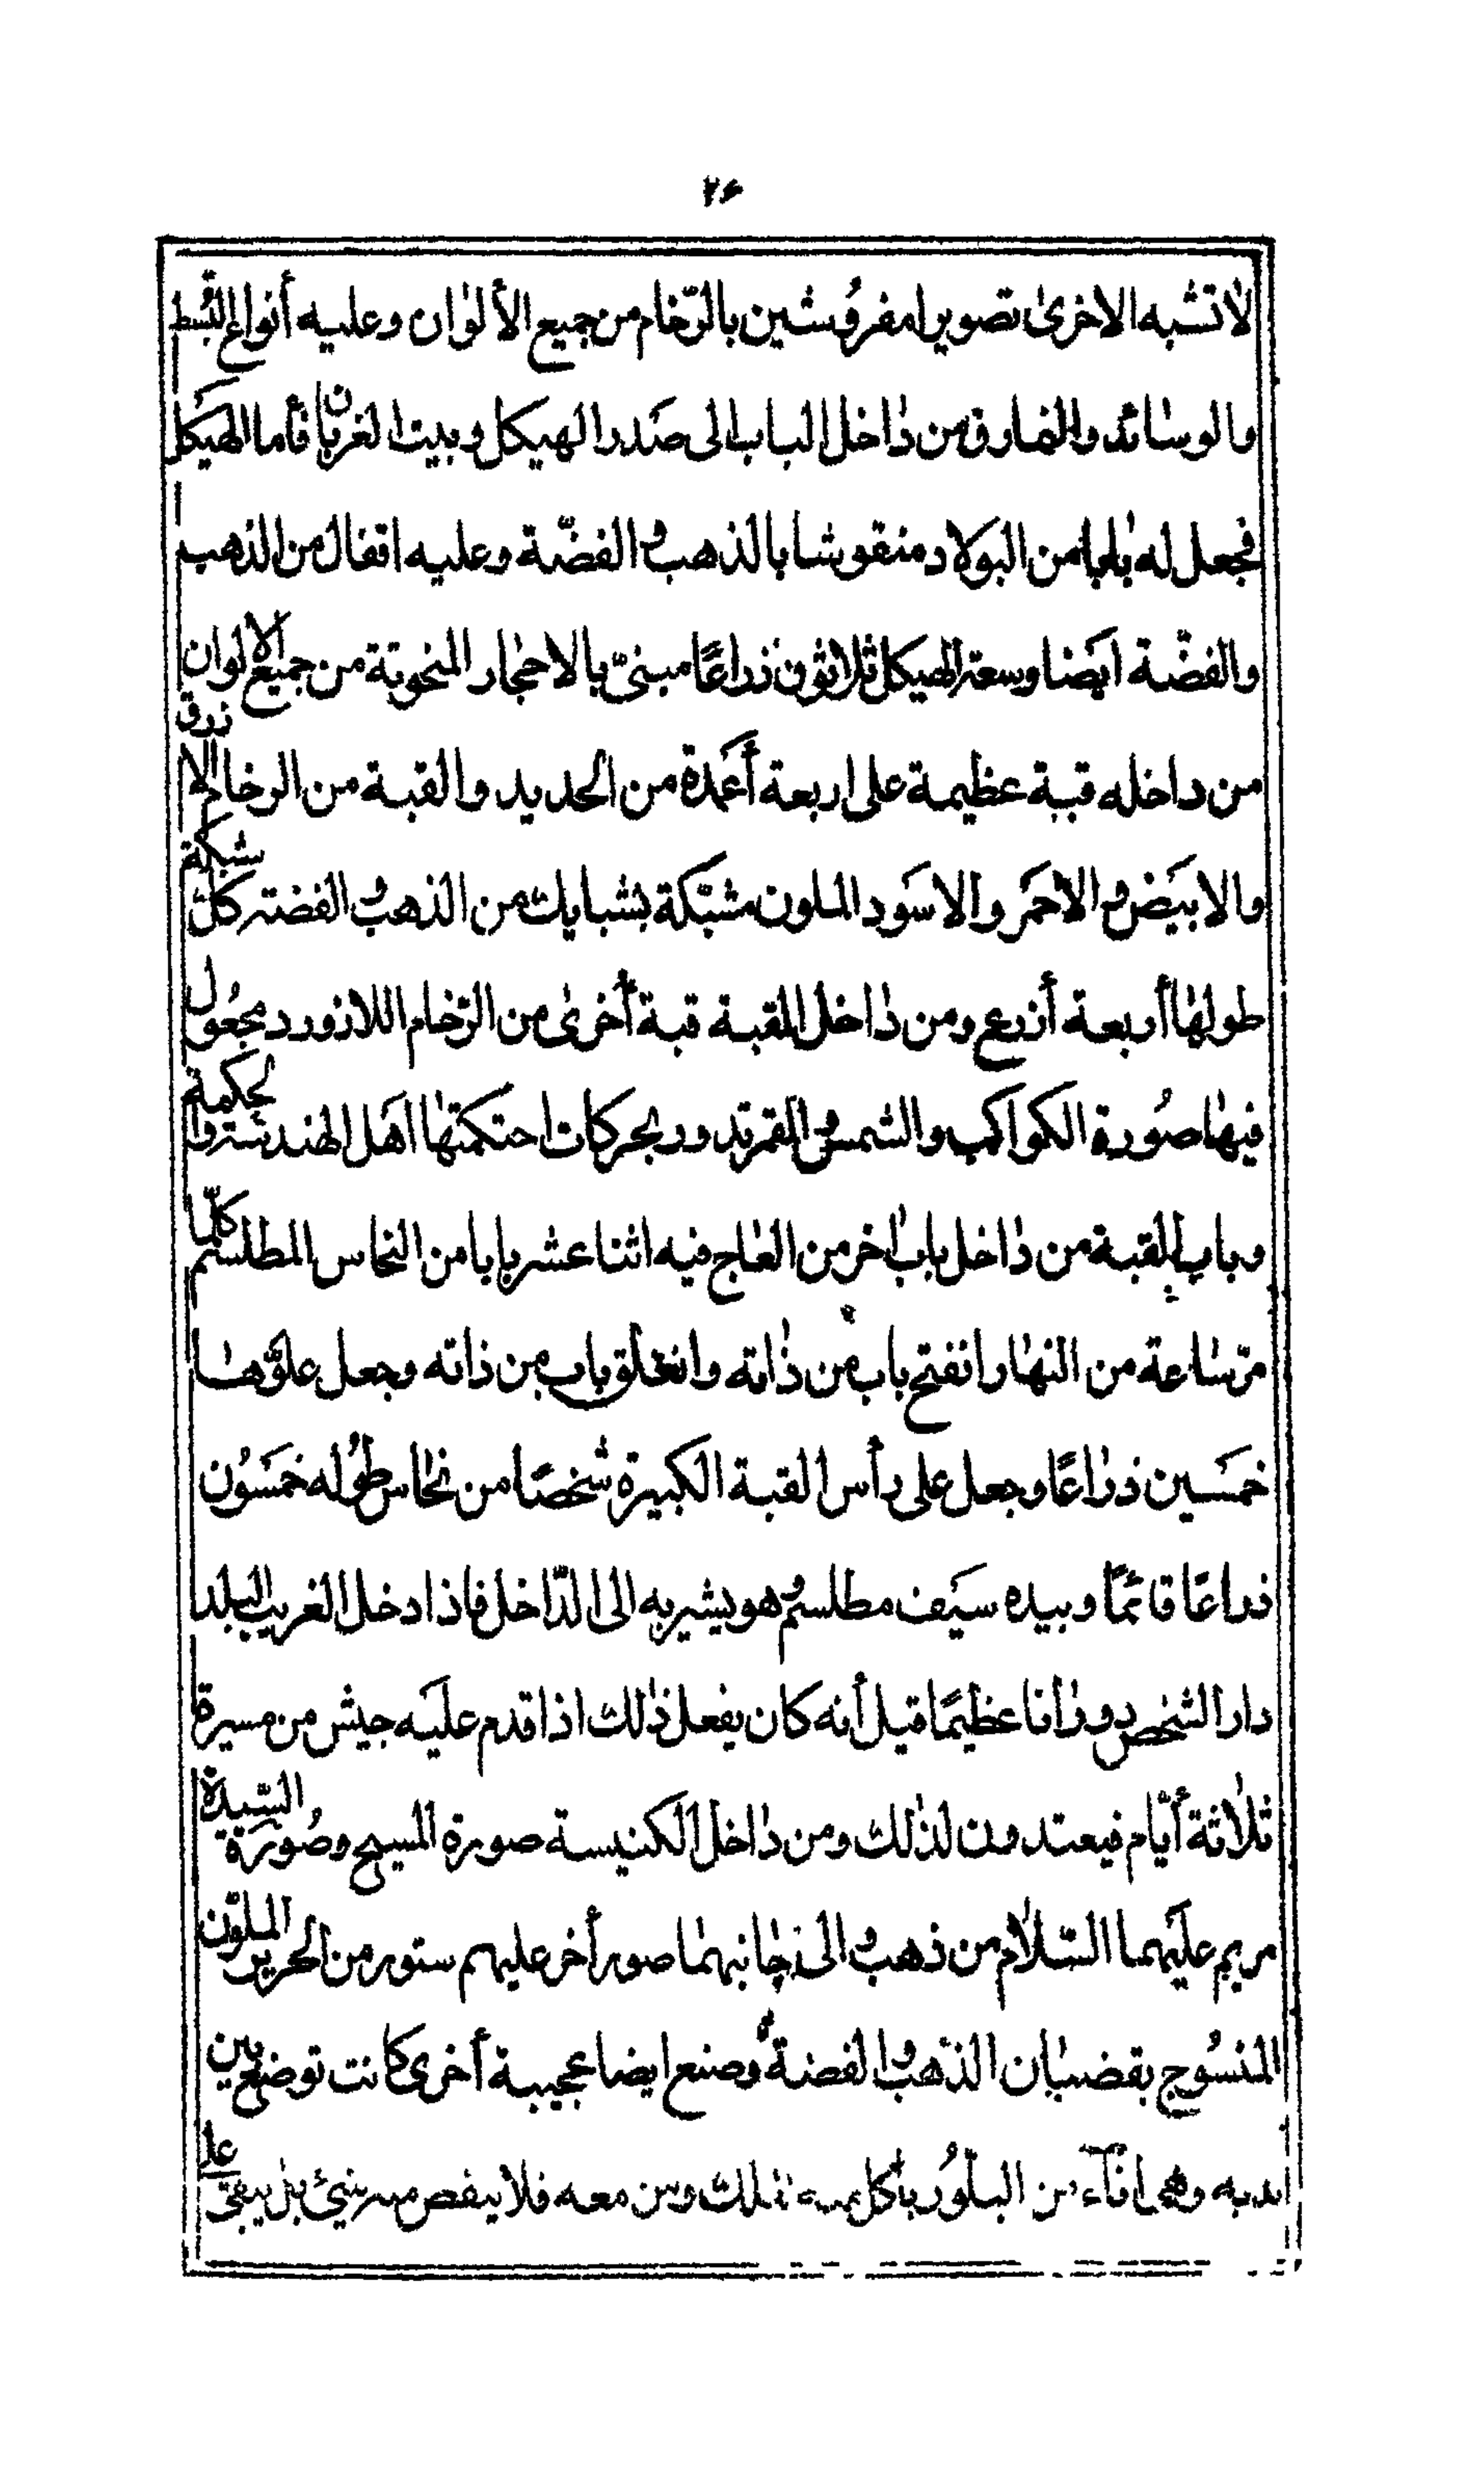 ٢۶
لاتشبه الاخرى تصويرا مفروشين بالرّخام من جميع الألوان وعليه أنواع البُسط
والوسائد والنمارق من داخل الباب الى صَدر الهيكل وبيت القربان فأما الهيكل
فجعل له بابا من البولاد منقوشا بالذهب والفضّة وعليه اقفال من الذهب
والفضّة ايضا وسعة الهيكل ثلاثون ذراعًا مبنىّ بالاحجار المنحوتة من جميع الالوان
من داخله قبة عظيمة على اربعة أعَمدة من الحديد والقبة من الرخام الازرق
والابيَض والاحمَر والاسَود الملون مشبّكة بشبابيك من الذهب والفضة كل شبكة
طولها أربعة أذرع ومن داخل القبة قبة أخرى من الرّخام اللازورد مجعُول
فيها صُورة الكواكب والشمس والقمر تدور بحركات احتكمتها اهَل الهندسة والحكمة
وباب القبة من داخل باب اخر من العاج فيه اثنا عشر بابا من النحاس المطلسم كلّما
مرّ ساعة من النهار انفتح باب من ذاته وانغلق باب من ذاته وجعل علوّها
خمَسين ذراعًا وجعل على رأس القبة الكبيرة شخصًا من نحاس طُوله خمَسُون
ذراعًا قائمًا وبيده سيَف مطلسم وهو يشير به الى الدّاخل فاذا دخل الغريب البلد
دار الشخص دورانا عظيمًا قيل أنه كان يفعل ذلك اذا قدم عليَه جيش من مسيرة
ثلاثة أيّام فيعتدون لذلك ومن داخل الكنيسة صورة المسيح وصُورَة السّيدة
مريم عليَهما السّلام من ذهب والى جانبهما صور أخر عليهم ستور من الحرير الملوّن
المنسُوج بقضبان الذّهب والفضة وصنع ايضا عجيبة أخرى كانت توضع بين
يديه وهى اناء من البلّور يأكل منه الملك ومن معه فلا ينقص منه شئ بل يبقى على